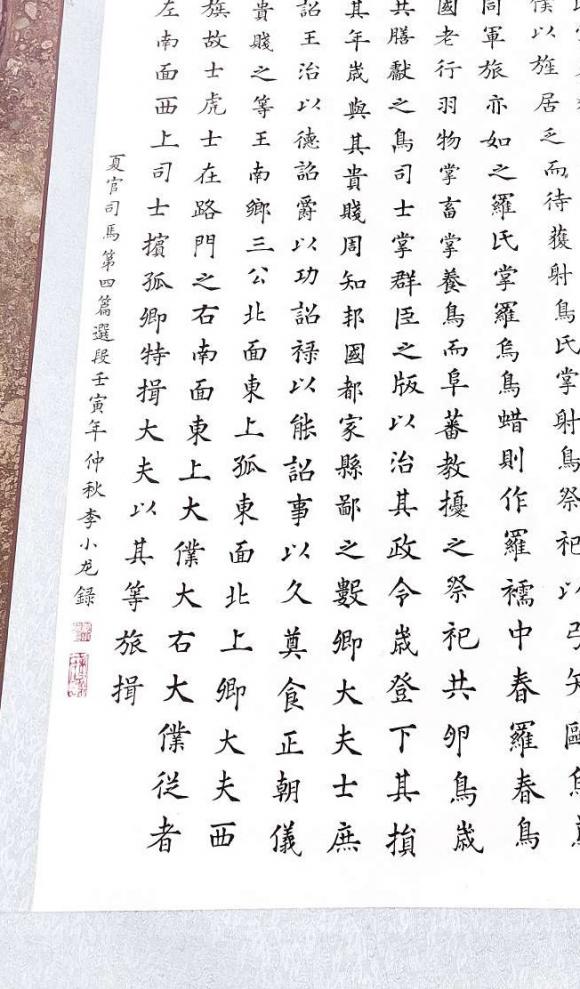 僕以旌居乏而待獲射鳥氏掌射鳥祭祀以弓矢歐烏鳶
同軍旅亦如之羅氏掌羅烏鳥蜡則作羅襦中春羅春鳥
國老行羽物掌畜掌養鳥而阜蕃教擾之祭祀共卵鳥歲
共膳獻之鳥司士掌群臣之版以治其政令歲登下其損
其年歲與其貴賤周知邦國都家縣鄙之數卿大夫士庶
詔王治以德詔爵以功詔祿以能詔事以久奠食正朝儀
貴賤之等王南鄉三公北面東上孤東面北上卿大夫西
旗故士虎士在路門之右南面東上大僕大右大僕從者
左南面西上司士擯孤卿特揖大夫以其等旅揖
夏官司馬第四篇選段壬寅年仲秋李小龙録